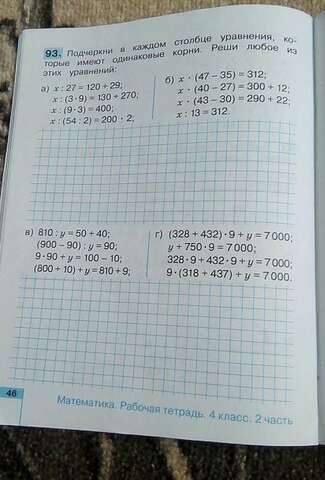 93. Подчеркни в каждом столбце уравнения, ко-
торые имеют одинаковые корни. Реши любое из
этих уравнений:
а) x : 27 = 120 + 29;
x : (3 · 9) = 130 + 270;
x : (9 · 3) = 400;
x : (54 : 2) = 200 · 2;
б) x · (47 − 35) = 312;
x · (40 − 27) = 300 + 12;
x · (43 − 30) = 290 + 22;
x : 13 = 312.
в) 810 : y = 50 + 40;
(900 − 90) : y = 90;
9 · 90 + y = 100 − 10;
(800 + 10) + y = 810 + 9;
г) (328 + 432) · 9 + y = 7 000;
y + 750 · 9 = 7 000;
328 · 9 + 432 · 9 + y = 7 000;
9 · (318 + 437) + y = 7 000.
46
Математика. Рабочая тетрадь. 4 класс. 2 часть